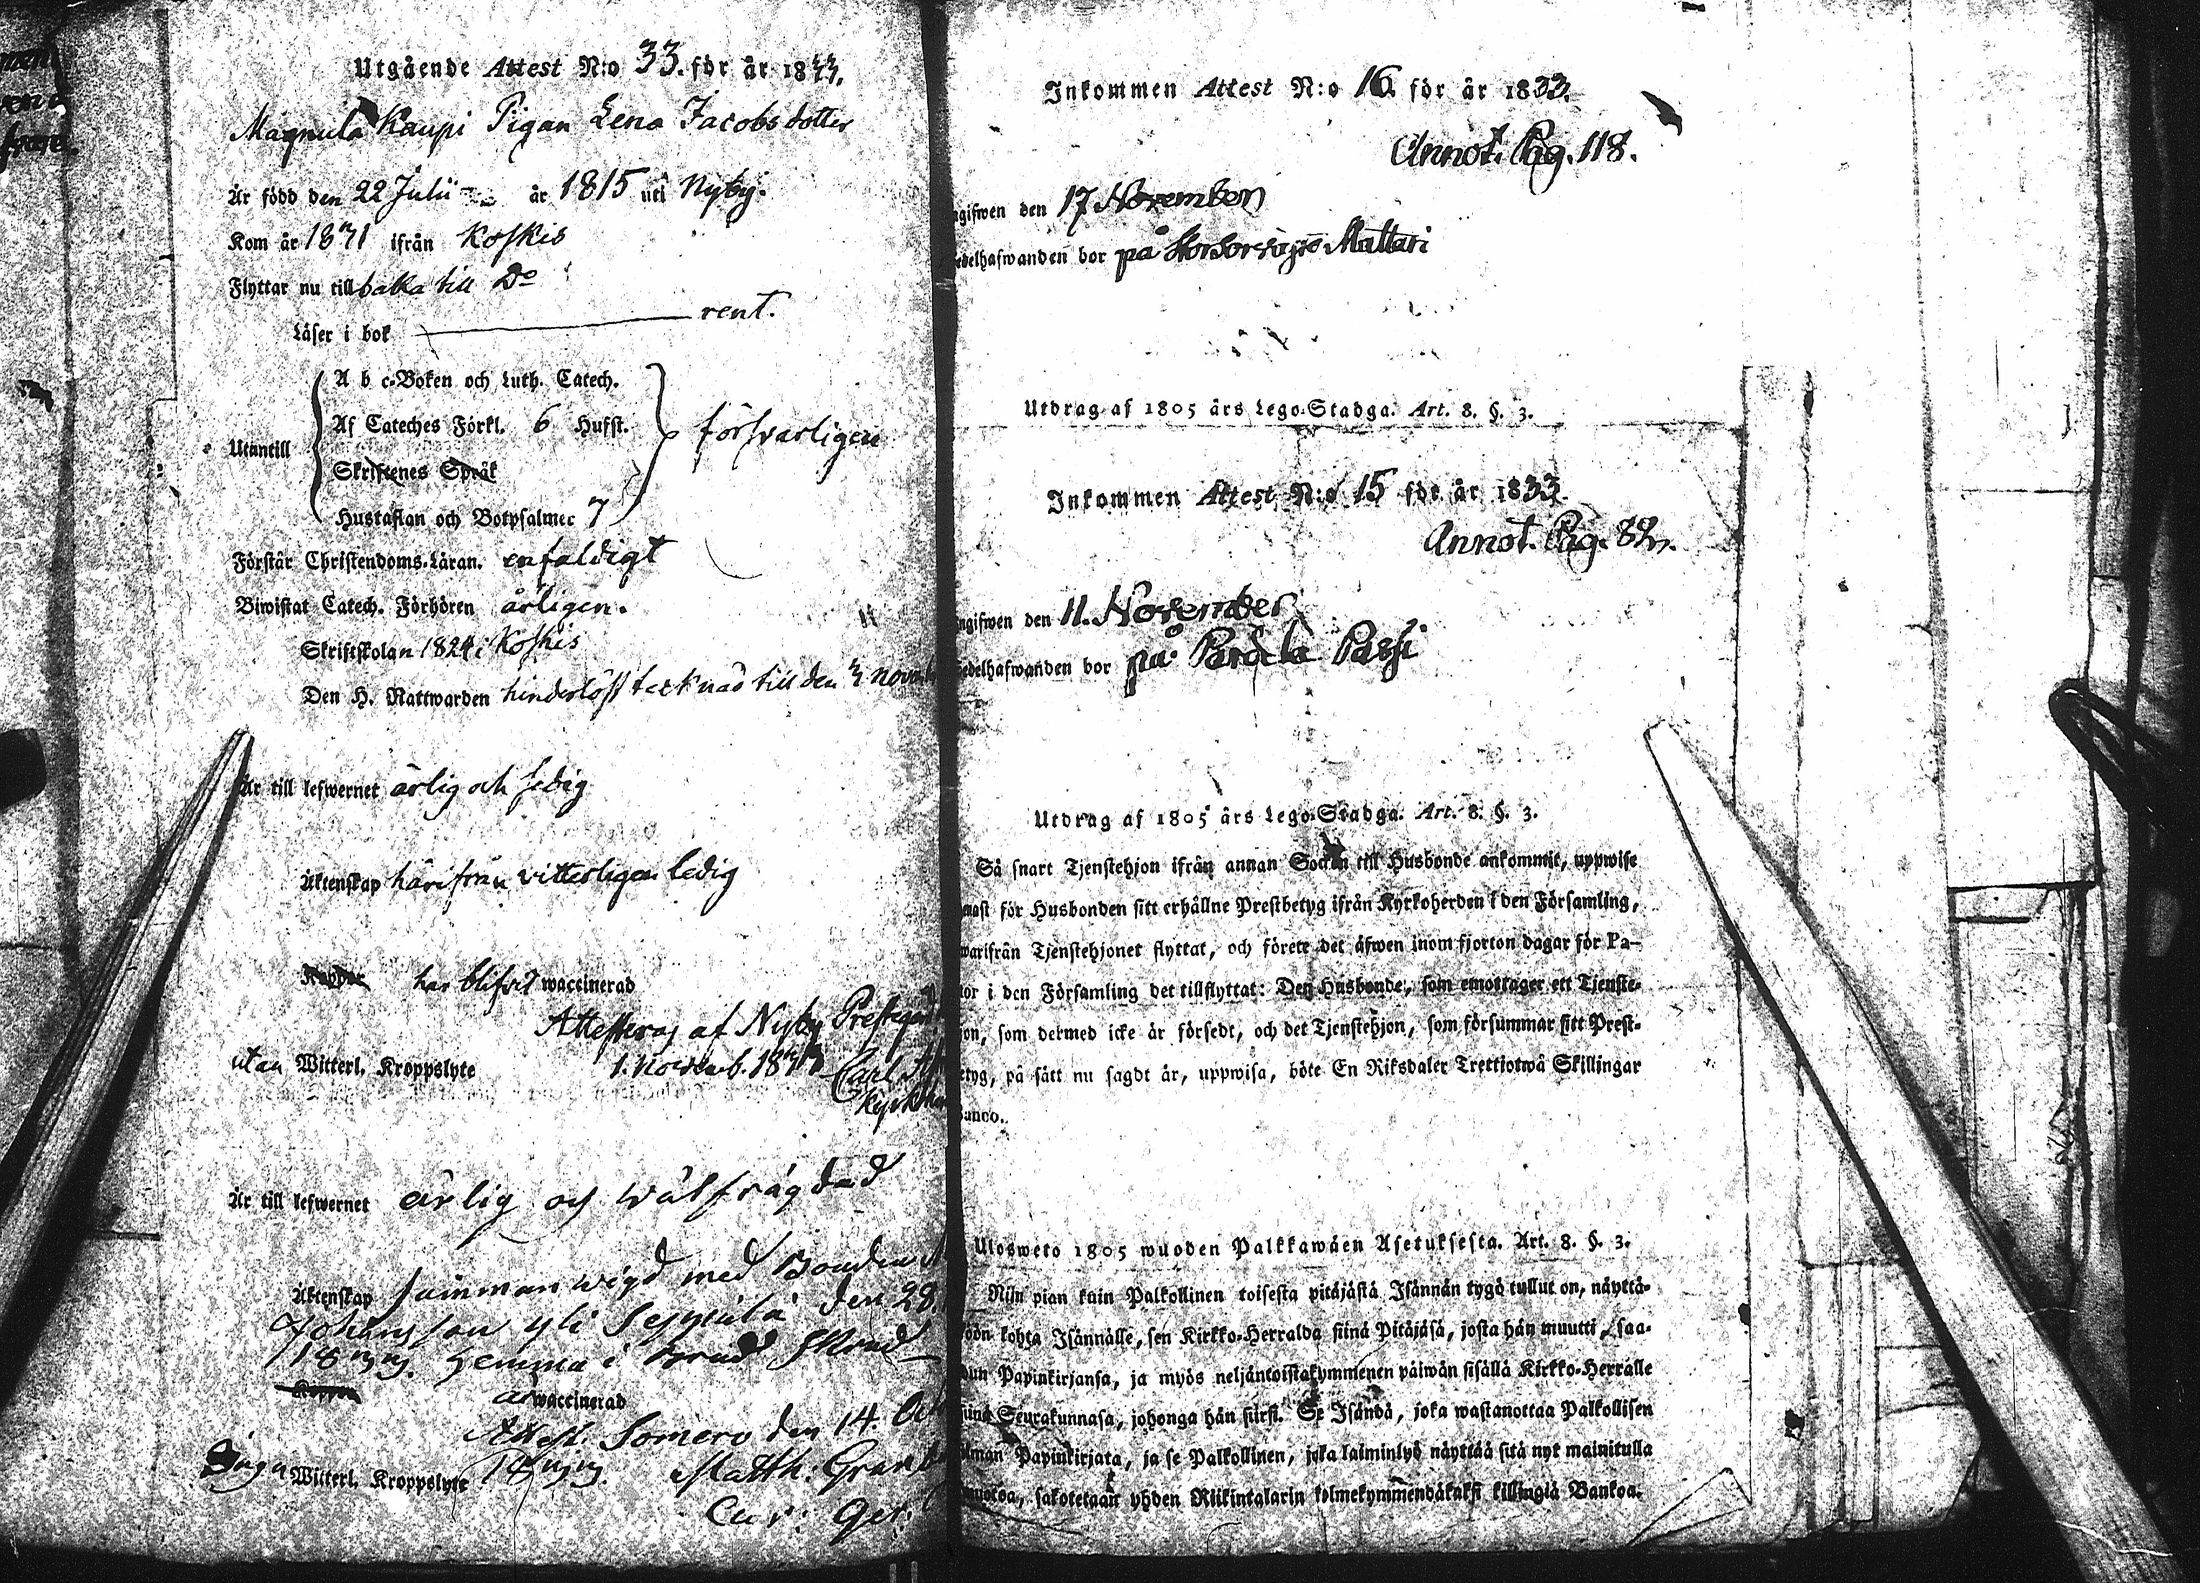 Utgående Attest N:o 33. för år 1833.
Magnula Kaupi Pigan Lena Jacobsdotter
Är född den 22 Julii år 1815 uti Nyby.
Kom år 1831 ifrån Koskis
Flyttar nu tillbaka till Do
Läser i bok rent.
A b c-Boken och Luth. Catech.
Af Cateches Förkl. 6 Hufst.
Utantill försvarligen
Skriftenes Språk
Hustaflan och Botpsalmer 7
Förstår Christendoms-Läran. enfaldigt
Biwistat Catech. Förhören årligen.
Skriftskolan 1824 i Koskis
Den H. Nattwarden hinderlöst tecknad till den
Är till lefwernet ärlig och sedig
Äktenskap härifrån vitterligen ledig
Koppor har blifvit waccinerad
Attesteras af Nyby Prestegård
utan Witterl. Kroppslyte 1. Novemb. 1833
Carl
Är till lefwernet ärlig og wälfrägdad
Äktenskap samman wigd med Bonden
Johansson Yli Seppälä den 28
1833. hemma i
Koppor är waccinerad
Attest. Somero den 14. Oct
Inga Witterl. Kroppslyte 1833. Matth: Gran
Cur: Ger:
Inkommen Attest N:o 16 för år 1833.
Annot. Pag. 118.
ngifwen den 17 November
edelhafwanden bor på Mattari
Utdrag af 1805 års Lego-Stadga. Art. 8. §. 3.
Inkommen Attest N:o 15 för år 1833.
Annot. Pag. 82.
ngifwen den 11. November
edelhafwanden bor på Passi
Utdrag af 1805 års Lego-Stadga. Art. 8. §. 3.
Så snart Tjenstehjon ifrån annan Socken till Husbonde ankommit, uppwise
nast för Husbonden sitt erhållne Prestbetyg ifrån Kyrkoherden i den Församling,
warifrån Tjenstehjonet flyttat, och förete det äfwen inom fjorton dagar för Pa-
tor i den Församling det tillflyttat: Den Husbonde, som emottager ett Tjenste-
jon, som dermed icke är försedt, och det Tjenstehjon, som försummar sitt Prest-
etyg, på sätt nu sagdt är, uppwisa, böte En Riksdaler Trettiotwå Skillingar
Banco.
Ulosweto 1805 wuoden Palkkawäen Asetuksesta. Art. 8. §. 3.
Niin pian kuin Palkollinen toisesta pitäjästä Isännän tygö tullut on, näyttä-
köön kohta Isännälle, sen Kirkko-Herralda siinä Pitäjäsä, josta hän muutti, saa-
dun Papinkirjansa, ja myös neljäntoistakymmenen päiwän sisällä Kirkko-Herralle
siinä Seurakunnasa, johonga hän siirsi. Se Isändä, joka wastanottaa Palkollisen
ilman Papinkirjata, ja se Palkollinen, joka laiminlyö näyttää sitä nyt mainitulla
muotoa, sakotetaan yhden Riikintalarin kolmekymmendäkaksi killingiä Bankoa.